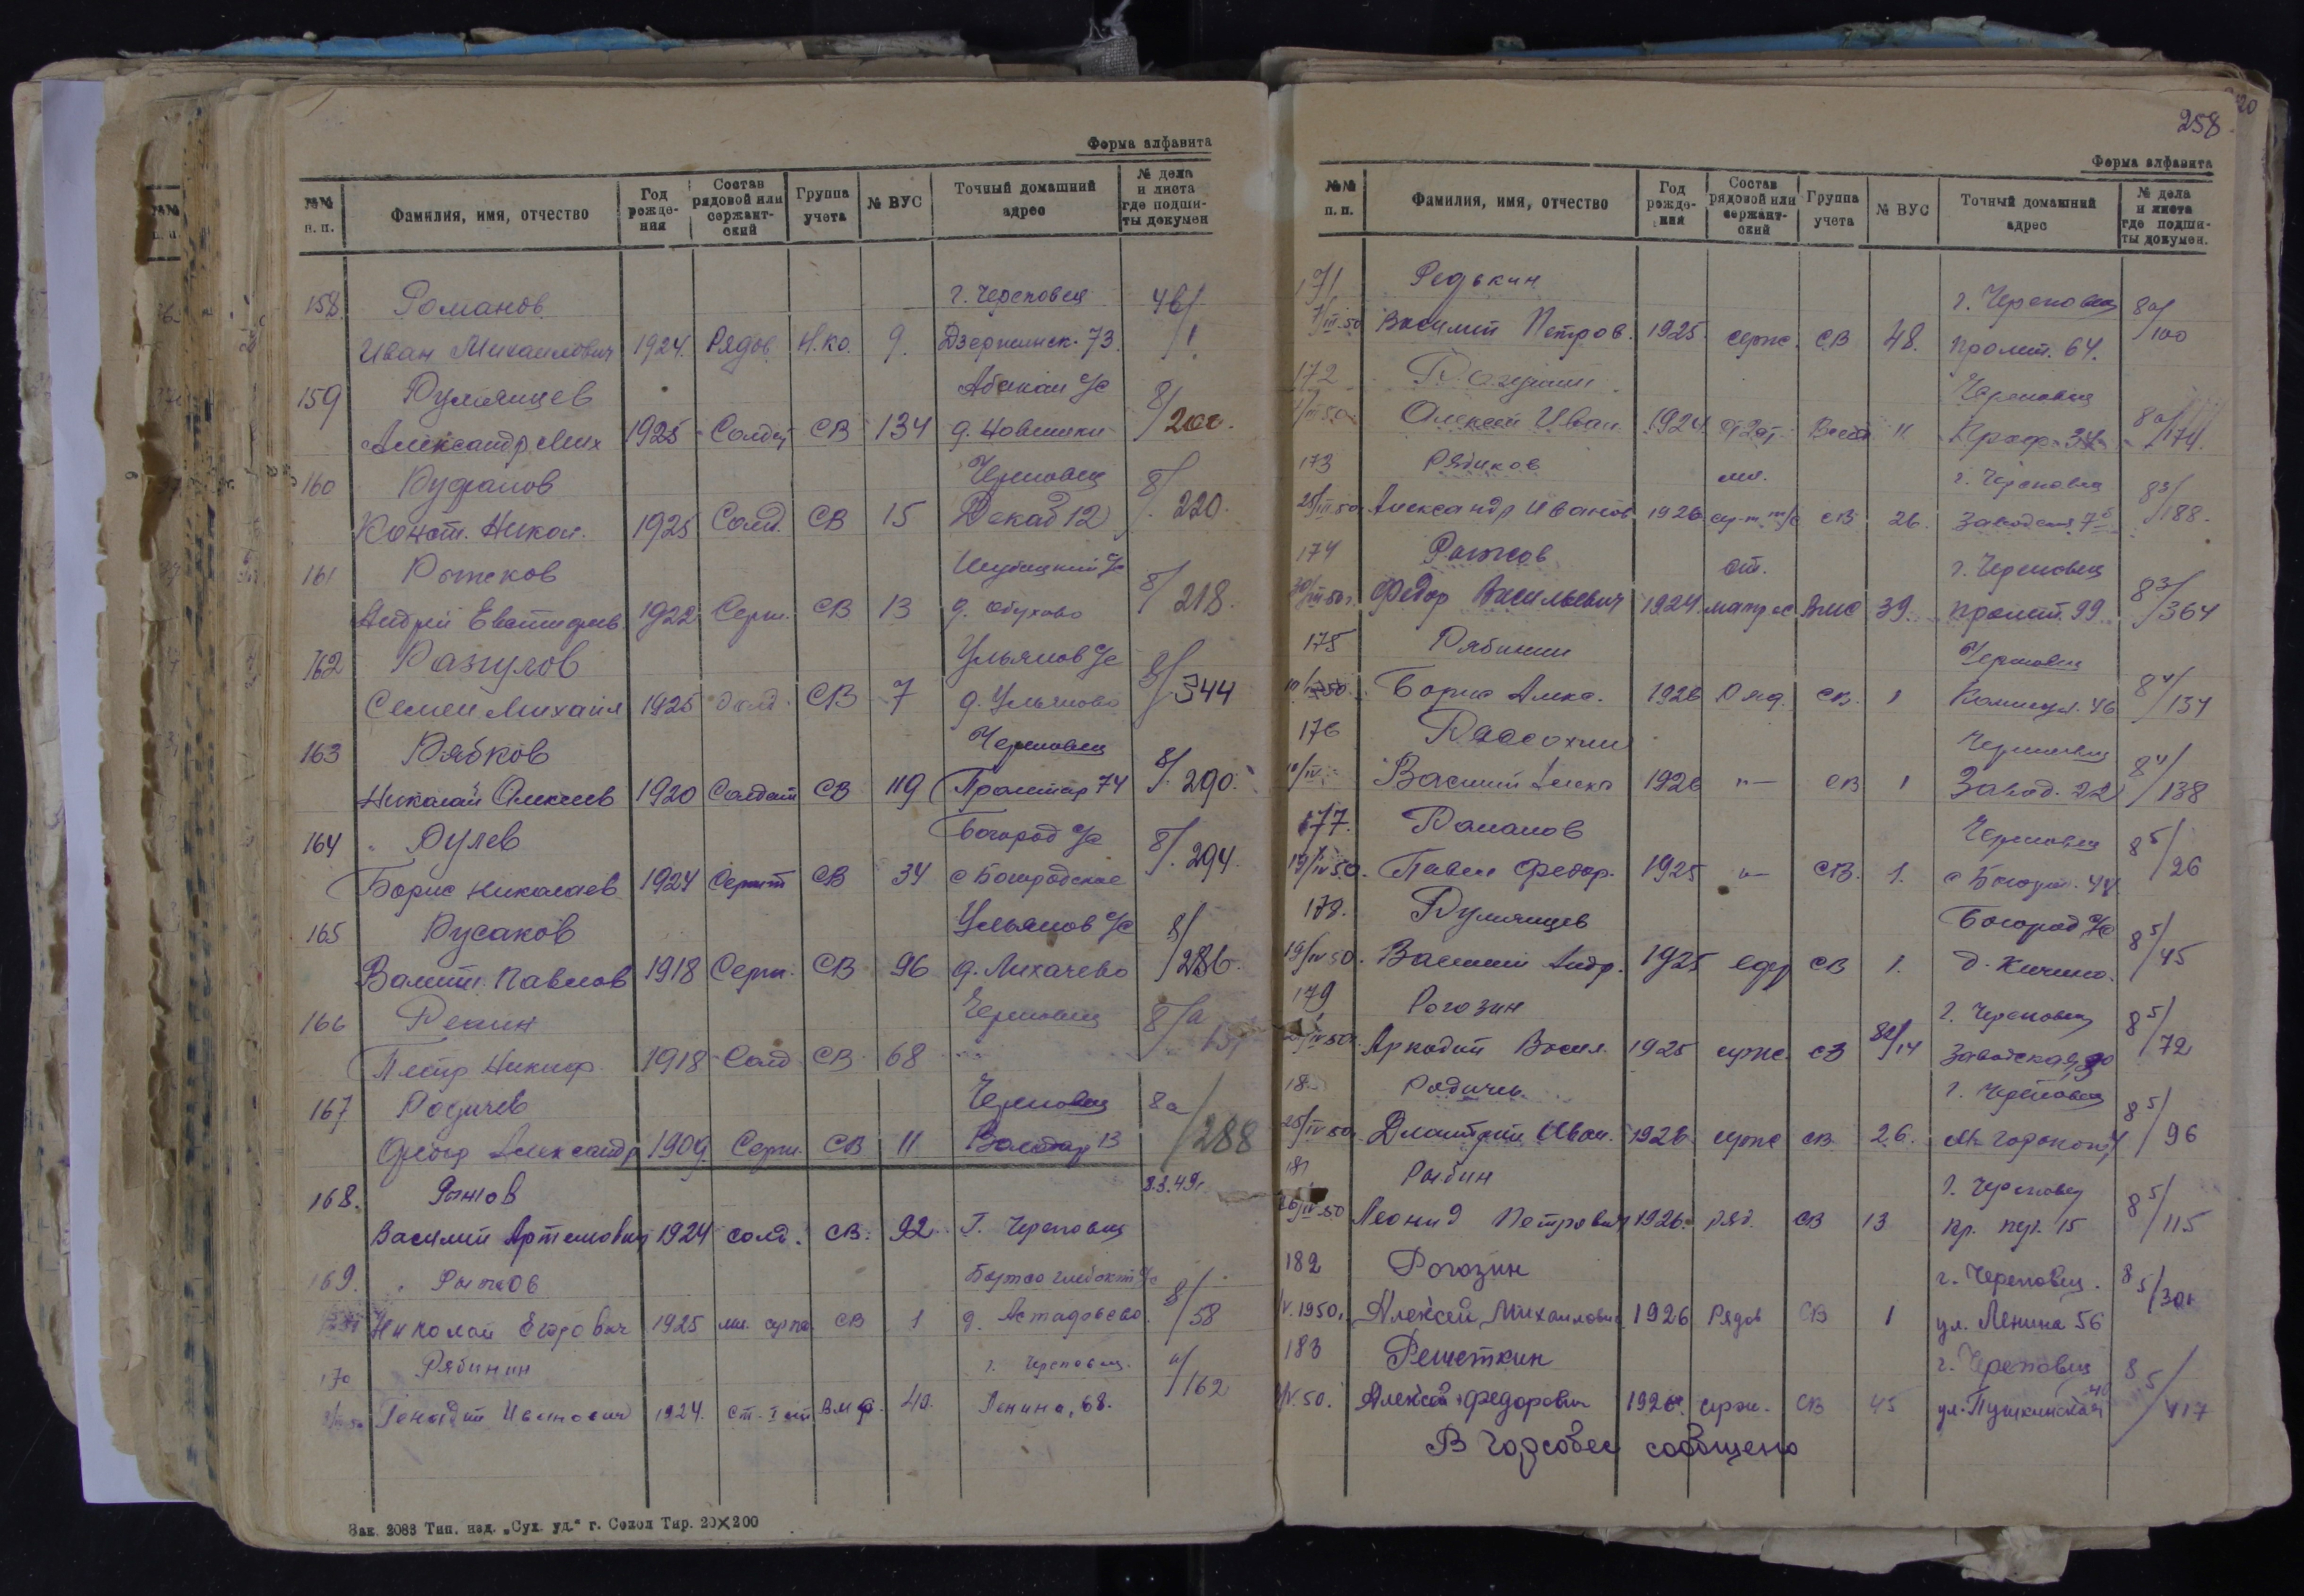 Форма алфавита
№№ п. п. Фамилия, имя, отчество Год рожде-ния Состав рядовой или сержант-ский Группа учета № ВУС Точный домашний адрес № дела и листа где подши-ты докумен
158. Романов г. Череповец 4б/
Иван Михаилович 1924. Рядов. Н.ко. 9. Дзержинск. 73. 1
159 Румянцев Абакан с/с 8/
Александр Мих 1925 Солдат СВ 134 д. Новинки
160 Руфанов Череповец 8/
Конст. Никол. 1925 Солд. СВ 15 Декаб 12 220.
161 Рыжков с/с 8/
Андрей 1922 Серж. СВ 13 д. Обухово 218.
162 Разгулов Ульянов с/с 8/
Семен Михаил 1925 Солд. СВ 7 д. Ульяново 344
163 Рябков Череповец 8/
Николай Алексеев 1920 Солдат СВ 119 Пролетар 74 290.
164 Рулев Богород с/с 8/
Борис Николаев 1924 Сержт СВ 34 с Богородское 294.
165 Русаков Ульянов с/с 8/
Валент. Павлов 1918 Серж. СВ 96 д. Лихачево 286.
166 Рекин Череповец 8/а
Петр Никиф. 1918 Солд СВ 68
167 Родичев Череповец 8а/
Александр 1909. Серж. СВ 11 13 288
168. Рыжов 2.3.49г.
Василий Артемович 1924 солд. СВ. 92 Г. Череповец
169. Рыжов с/с 8/
Николай Егорович 1925 мл. серж. СВ 1 д. Астафьево. 58
170 Рябинин г. Череповец.
Генадий Иванович 1924. ВМФ. 40. Ленина, 68. 162
Зак. 2083 Тип. изд. „Сух. уд." г. Сокол Тир. 20×200
258.
Форма алфавита
№№ п. п. Фамилия, имя, отчество Год рожде-ния Состав рядовой или сержант-ский Группа учета № ВУС Точный домашний адрес № дела и листа где подши-ты докумен.
171 Редькин г. Череповец 8а/
7/III.50 Василий Петров. 1925. серж. СВ 48. Пролет. 64. 100
172 Череповец 8а/
Алексей Иван. 1924 11 174.
173 Рябиков мл. г. Череповец 8³/
25/III.50 Александр Иванов 1926 СВ 26. Заводская 188.
174 Рыжов ст. г. Череповец 8³/
30/III 50г. Федор Васильевич 1924. матрос ВМС 39. Пролет. 99. 364
175 Рябинин Череповец 8⁴/
Борис Алекс. 1926 Ряд. СВ. 1 Коммун. 46 134
176 Рассохин Череповец 8⁴/
10/IV Василий Алекс 1926 "— СВ 1 Завод. 22 138
177. Романов Череповец 8⁵/
19/IV 50. Павел Федор. 1925 "— СВ. 1. 26
178. Румянцев Богород с/с 8⁵/
19/IV 50. Василий Андр. 1925 СВ 1. д. Кичино. 45
179 Рогозин г. Череповец 8⁵/
Аркадий Васил. 1925 серж. СВ Заводская, 72
18 Родичев г. Череповец 8⁵/
25/IV 50. Дмитрий Иван. 1926. серж СВ. 26. 96
181 Рыбин г. Череповец 8⁵/
26/IV.50 Леонид Петрович 1926. ряд. СВ 13 пр. 15 115
182 Рогозин г. Череповец. 8⁵/
V.1950г. Алексей Михаилович 1926 Рядов СВ 1 ул. Ленина 56
183 Решеткин г. Череповец 8⁵/
V.50. Алексей Федорович 1926 серж. СВ 45 ул. Пушкинская 417
В горсовет сообщено